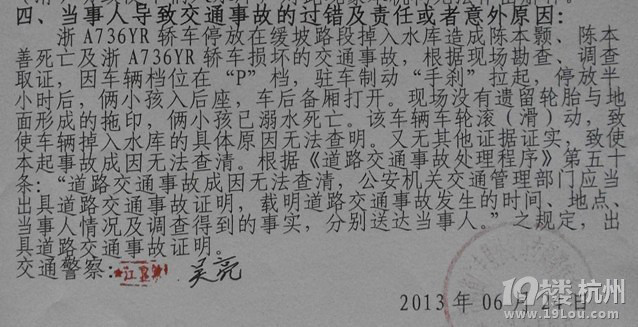 四、当事人导致交通事故的过错及责任或者意外原因：
浙A736YR轿车停放在缓坡路段掉入水库造成陈本颢、陈本
善死亡及浙A736YR轿车损坏的交通事故，根据现场勘查、调查
取证，因车辆档位在“P”档，驻车制动“手刹”拉起，停放半
小时后，俩小孩入后座，车后备厢打开。现场没有遗留轮胎与地
面形成的拖印，俩小孩已溺水死亡。该车辆车轮滚（滑）动，致
使车辆掉入水库的具体原因无法查明。又无其他证据证实，致使
本起事故成因无法查清。根据《道路交通事故处理程序》第五十
条：“道路交通事故成因无法查清，公安机关交通管理部门应当
出具道路交通事故证明，载明道路交通事故发生的时间、地点、
当事人情况及调查得到的事实，分别送达当事人。”之规定，出
具道路交通事故证明。
交通警察：吴亮
2013年06月24日
19楼 杭州
www.19lou.com